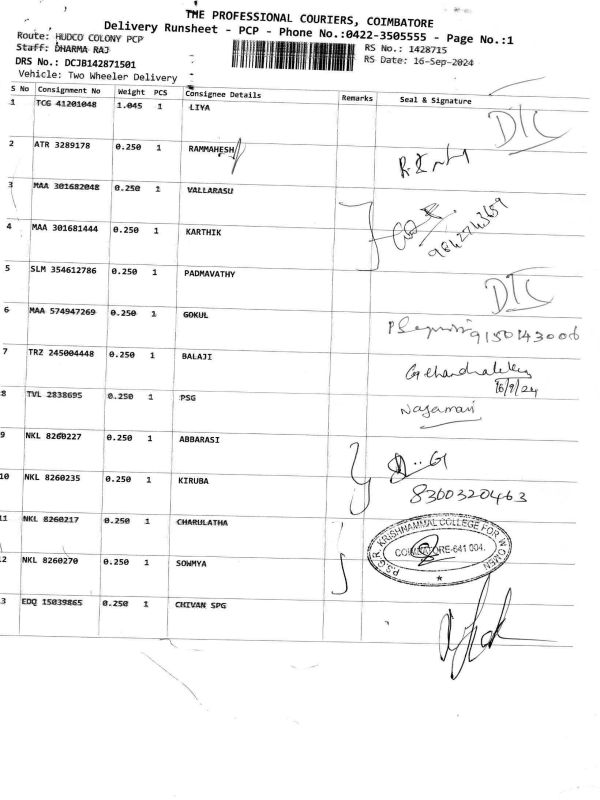 THE PROFESSIONAL COURIERS, COIMBATORE
Delivery Runsheet - PCP - Phone No.:0422-3505555 - Page No.:1
Route: HUDCO COLONY PCP
RS No.: 1428715
Staff: DHARMA RAJ
RS Date: 16-Sep-2024
DRS No.: DCJB142871501
Vehicle: Two Wheeler Delivery
S No Consignment No Weight PCS Consignee Details Remarks Seal & Signature
1 TCG 41201048 1.045 1 LIYA DTC
2 ATR 3289178 0.250 1 RAMMAHESH
3 MAA 301682048 0.250 1 VALLARASU
4 MAA 301681444 0.250 1 KARTHIK 9842743659
5 SLM 354612786 0.250 1 PADMAVATHY DTC
6 MAA 574947269 0.250 1 GOKUL 9150143006
7 TRZ 245004448 0.250 1 BALAJI
16/9/24
8 TVL 2838695 0.250 1 PSG Nagamani
9 NKL 8260227 0.250 1 ABBARASI
10 NKL 8260235 0.250 1 KIRUBA 8300320463
11 NKL 8260217 0.250 1 CHARULATHA
P.S.G.R. KRISHNAMMAL COLLEGE FOR WOMEN
COIMBATORE-641 004.
12 NKL 8260270 0.250 1 SOWMYA
13 EDQ 15039865 0.250 1 CHIVAN SPG